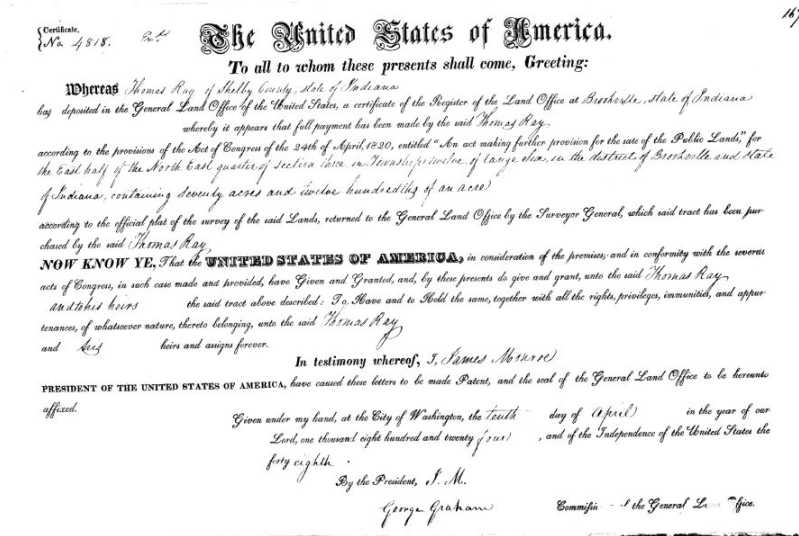 167
Certificate,
No. 4818.
The United States of America.
To all to whom these presents shall come, Greeting:
Whereas Thomas Ray of Shelby County, state of Indiana
has deposited in the General Land Office of the United States, a certificate of the Register of the Land Office at Brookville, state of Indiana
whereby it appears that full payment has been made by the said Thomas Ray
according to the provisions of the Act of Congress of the 24th of April, 1820, entitled "An act making further provision for the sale of the Public Lands," for
the East half of the North East quarter of section three in Township twelve of range six, in the district of Brookville and state
of Indiana, containing seventy acres and twelve hundredths of an acre
according to the official plat of the survey of the said Lands, returned to the General Land Office by the Surveyor General, which said tract has been pur
chased by the said Thomas Ray
NOW KNOW YE, That the UNITED STATES OF AMERICA, in consideration of the premises, and in conformity with the several
acts of Congress, in such case made and provided, have Given and Granted, and, by these presents do give and grant, unto the said Thomas Ray
and to his heirs the said tract above described: To Have and to Hold the same, together with all the rights, privileges, immunities, and appur
tenances, of whatsoever nature, thereto belonging, unto the said Thomas Ray
and his heirs and assigns forever.
In testimony whereof, I, James Monroe
PRESIDENT OF THE UNITED STATES OF AMERICA, have caused these letters to be made Patent, and the seal of the General Land Office to be hereunto
affixed.
Given under my hand, at the City of Washington, the tenth day of April in the year of our
Lord, one thousand eight hundred and twenty four, and of the Independence of the United States the
forty eighth.
By the President, J. M.
George Graham Commissi of the General L Office.